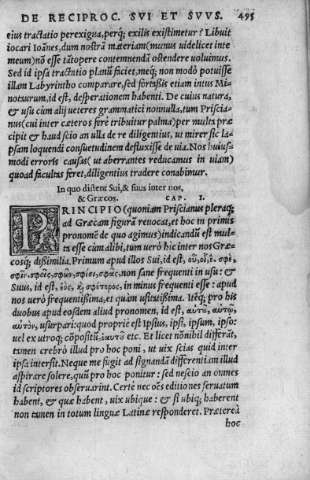 DE RECIPROC. SVI ET SVVS. 495
eius tractatio perexigna, perq́; exilis existimetur? Libuit
iocari Ioānes, dum nostrā māeriam (munus uidelicet inte
meum) nō esse tātopere contemnendā ostendere uoluimus.
Sed id ipsa tractatio planū ficiet, neq́; non modò potuisse
illam Labyrintho comparare, sed fortassis etiam intus Mi-
notaurum, id est, desperationem habenti. De cuius natura,
& usu cùm alij ueteres grammatici nonnulla, tum Priscia-
nus (cui inter cæteros ferè tribuitur palma) per multa præ
cipit & haud scio an ulla de re diligentius, ut mirer sic la-
psam loquendi consuetudinem defluxisse de uia. Nos huius
modi erroris causas (ut aberrantes reducamus in uiam)
quo ad facultas feret, diligentius tradere conabimur.
In quo distent Sui, & suus inter nos,
& Græcos. CAP. I.
PRINCIPIO (quoniam Priscianus pleraq́;
ad Græcam figurā reuocat, et hoc in primis
pronomē de quo agimus) indicandū est mul
ta esse cùm alibi, tum uerò hic inter nos Græ
cosq́; dissimilia. Primum apud illos Sui, id est, οὗ, οἷ, ἓ. σφὲ,
σφῖν, σφεῖς, σφῶν, σφίσι, σφᾶς, non sane frequenti in usu: &
Suus, id est, ἑὸς, ὃς, σφέτερος, in minus frequenti esse: apud
nos uerò frequentissima, et quàm usitatissima. Iteq́; pro his
duobus apud eosdem aliud pronomen, id est, αὐτοῦ, αὐτῷ,
αὐτὸν, usurpari: quod propriè est Ipsius, ipsi, ipsum, ipso:
uel ex utroq́; cōpositū, ἑαυτοῦ etc. Et licet nōnihil differāt,
tamen crebrò illud pro hoc poni, ut uix scias quid inter
ipsa intersit. Neque me fugit ad signandā differentiam illud
aspirare solere, quū pro hoc ponitur: sed nescio an omnes
id scriptores obseruarint. Certè nec oēs editiones seruatum
habent, & quæ habent, uix ubique: & si ubiq́; haberent
non tamen in totum linguæ Latinæ responderet. Præterea
hoc